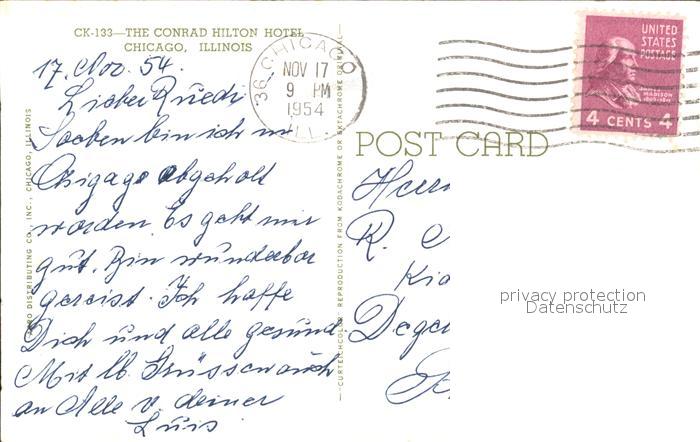 CK-133—THE CONRAD HILTON HOTEL
CHICAGO, ILLINOIS
17. Nov. 54.
Lieber Ruedi
Soeben bin ich in
Chigago abgeholt
worden. Es geht mir
gut. Bin wunderbar
gereist. Ich hoffe
Dich und alle gesund
Mit lb. Grüssen auch
an Alle v. deiner
CHICAGO
36
NOV 17
9 PM
1954
ILL.
UNITED
STATES
POSTAGE
JAMES
MADISON
4 CENTS 4
POST CARD
Herrn
R.
privacy protection
Datenschutz
DISTRIBUTING CO., INC., CHICAGO, ILLINOIS
REPRODUCTION FROM KODACHROME OR EKTACHROME ORIGINAL